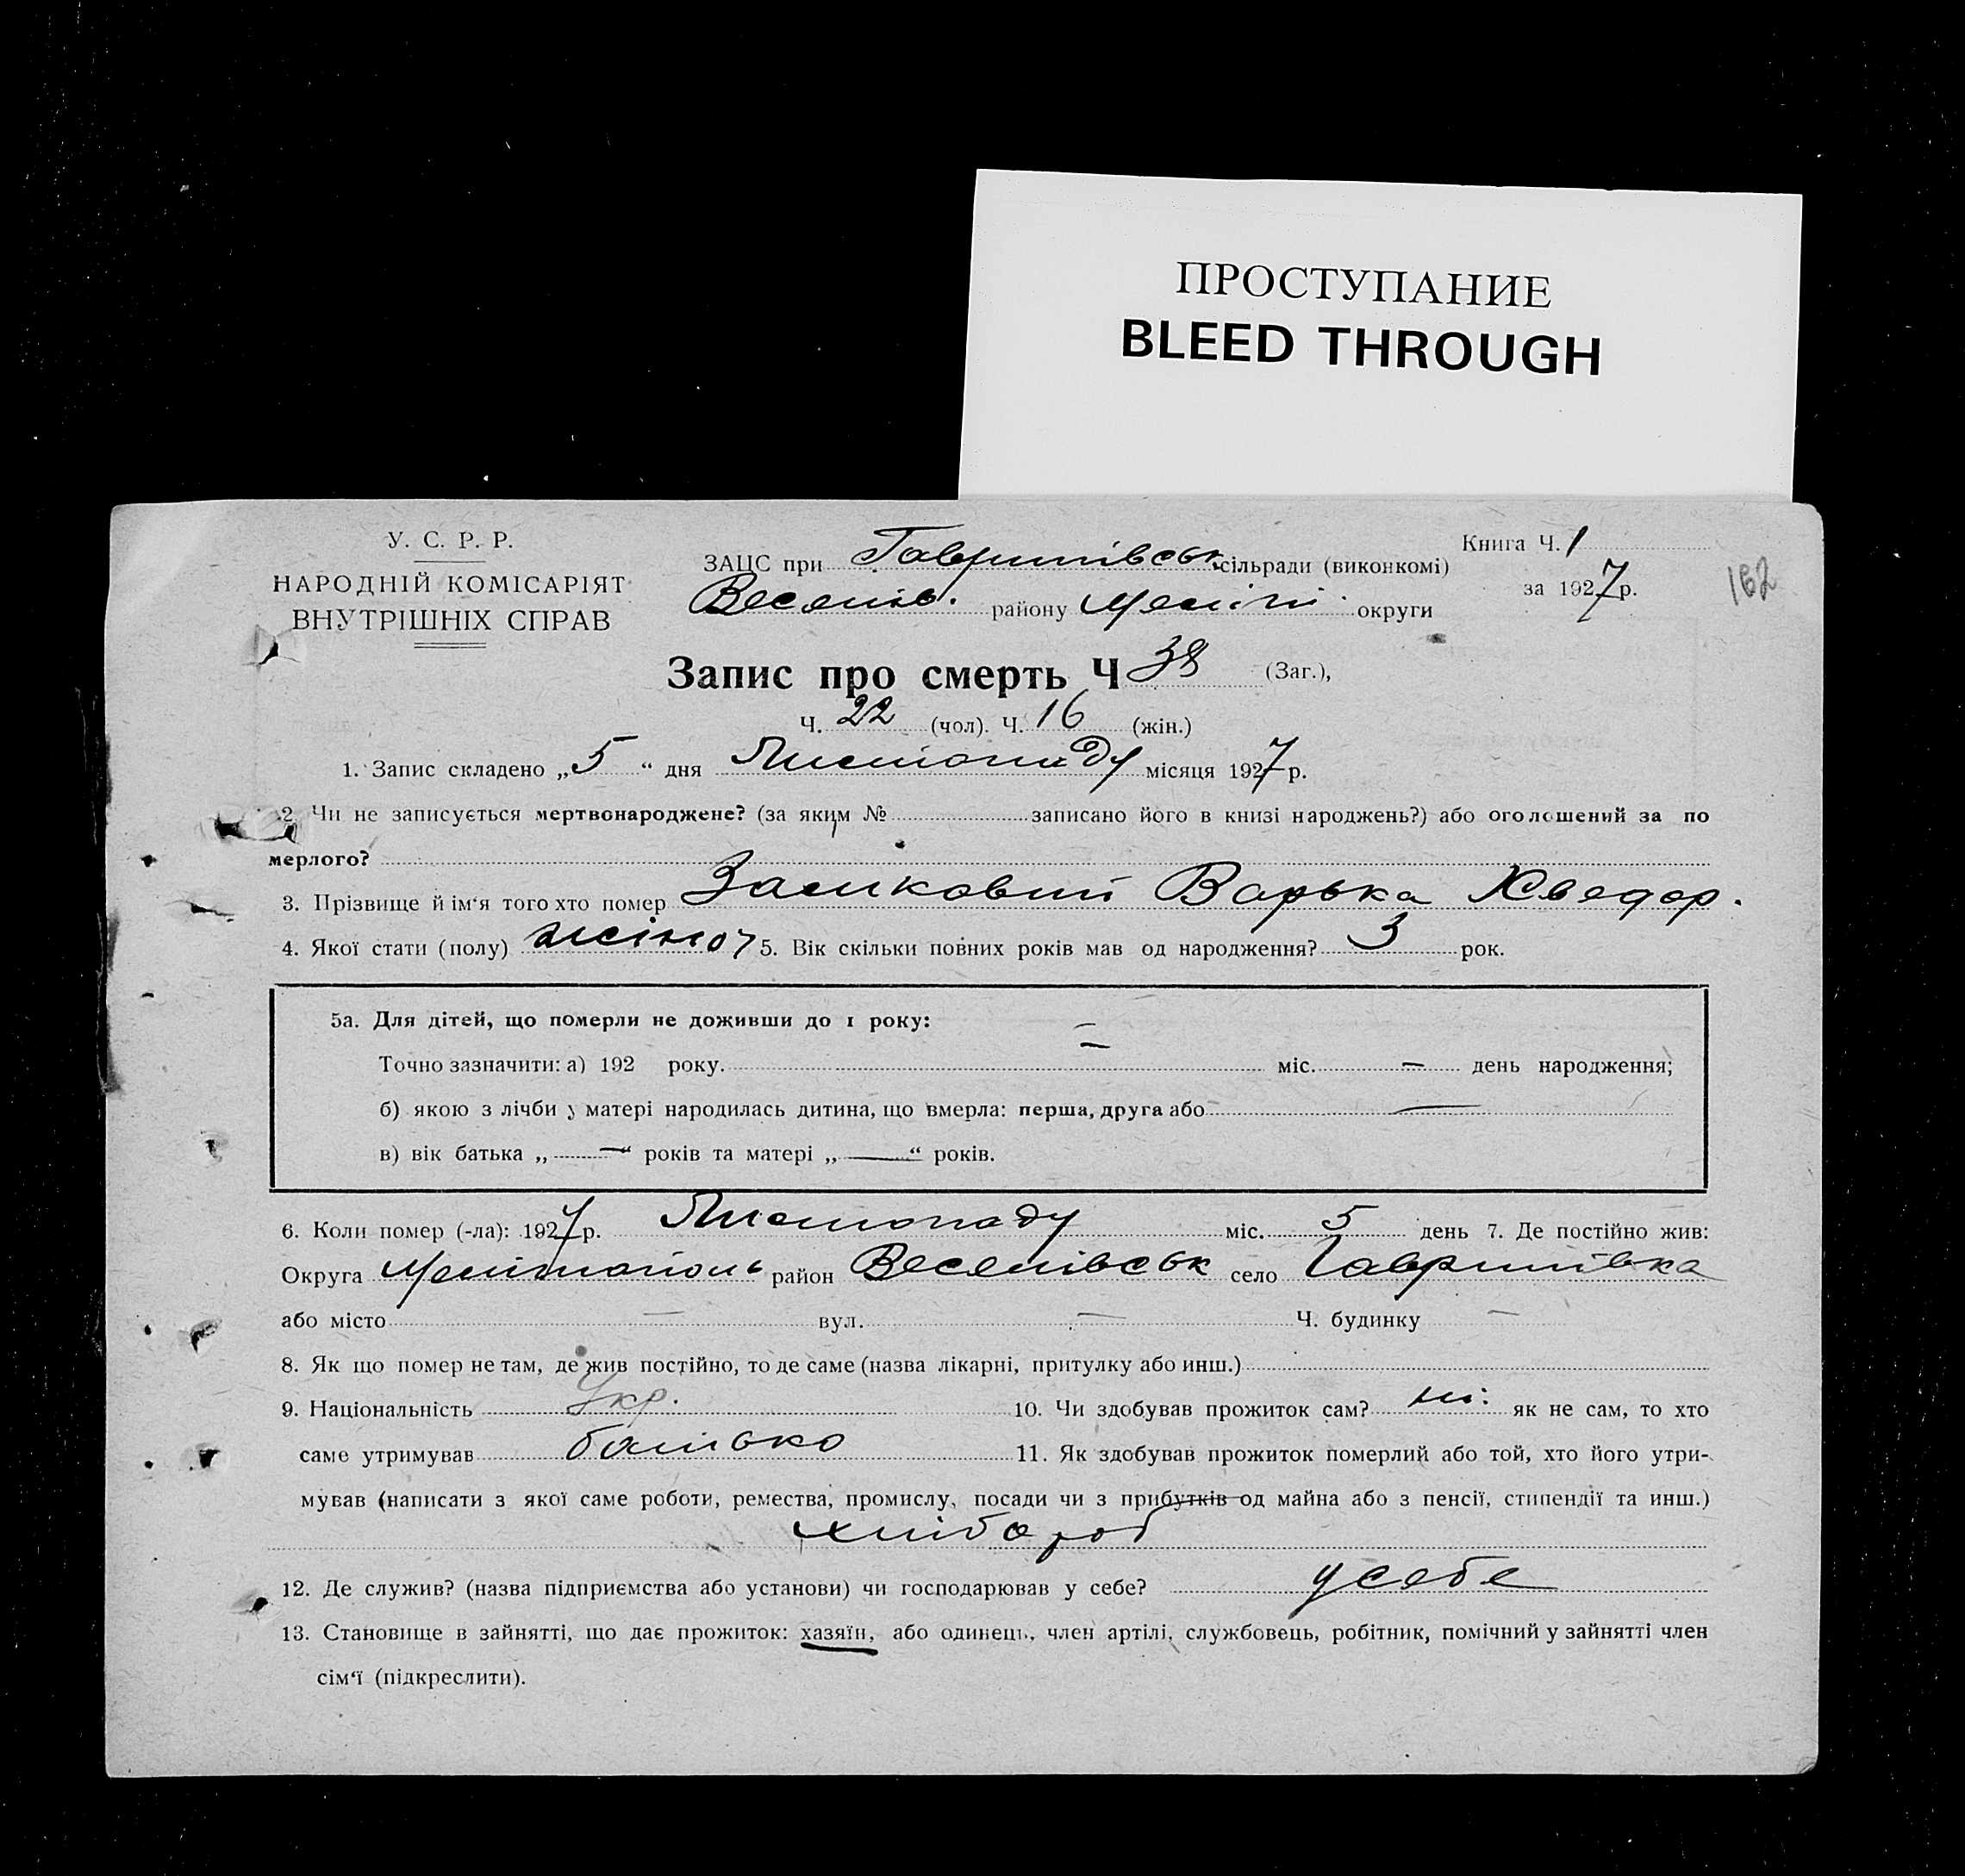 ПРОСТУПАНИЕ
BLEED THROUGH
У. С. Р. Р.
НАРОДНІЙ КОМІСАРІЯТ
ВНУТРІШНІХ СПРАВ
ЗАЦС при Гаврилівськ. сільради (виконкомі)
Веселів. району Меліт. округи
Книга Ч. 1
за 1927 р.
162
Запис про смерть Ч 38 (Заг.),
Ч. 22 (чол). Ч. 16 (жін.)
1. Запис складено „ 5 “ дня Листопаду місяця 1927 р.
2. Чи не записується мертвонароджене? (за яким № записано його в книзі народжень?) або оголошений за по
мерлого?
3. Прізвище й ім‘я того хто помер Варька Хведор.
4. Якої стати (полу) жіноч 5. Вік скільки повних років мав од народження? 3 рок.
5а. Для дітей, що померли не доживши до 1 року:
Точно зазначити: а) 192 року. — міс. — день народження;
б) якою з лічби у матері народилась дитина, що вмерла: перша, друга або —
в) вік батька „ — “ років та матері „ — “ років.
6. Коли помер (-ла): 1927 р. Листопаду міс. 5 день 7. Де постійно жив:
Округа Мелітополь район Веселівськ село Гаврилівка
або місто — вул. — Ч. будинку —
8. Як що помер не там, де жив постійно, то де саме (назва лікарні, притулку або инш.)
9. Національність Укр. 10. Чи здобував прожиток сам? ні. як не сам, то хто
саме утримував батько 11. Як здобував прожиток померлий або той, хто його утри-
мував (написати з якої саме роботи, ремества, промислу, посади чи з прибутків од майна або з пенсії, стипендії та инш.)
хлібороб
12. Де служив? (назва підприємства або установи) чи господарював у себе? у себе
13. Становище в зайнятті, що дає прожиток: хазяїн, або одинець, член артілі, службовець, робітник, помічний у зайнятті член
сім‘ї (підкреслити).